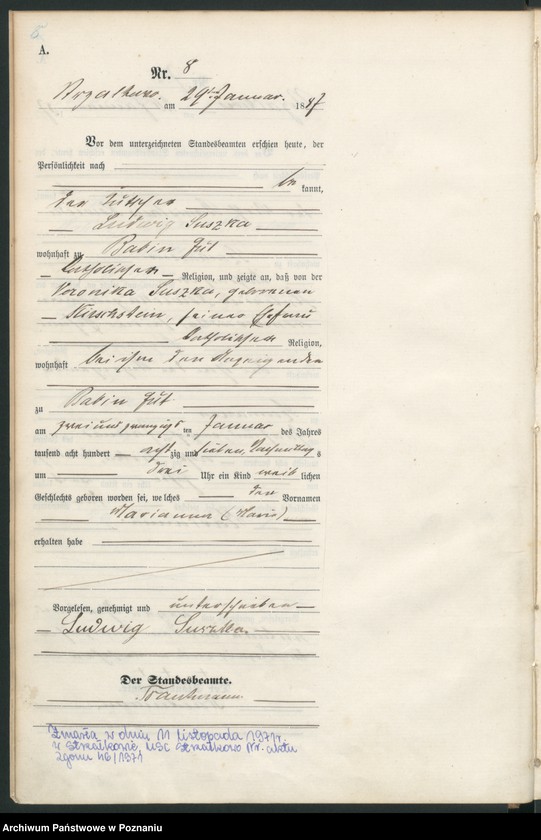 A.
Nr. 8
am 29ten Januar. 1887
Vor dem unterzeichneten Standesbeamten erschien heute, der
Persönlichkeit nach
be kannt,
der
Ludwig Suszka
wohnhaft zu Babin Gut
katholischer Religion, und zeigte an, daß von der
Veronika Suszka, geborenen
Kirschstein, seiner Ehefrau
katholischer Religion,
wohnhaft bei ihm dem Anzeigenden
zu Babin Gut
am zwei und zwanzigs ten Januar des Jahres
tausend acht hundert acht zig und sieben, Nachmittag s
um drei Uhr ein Kind weib lichen
Geschlechts geboren worden sei, welches den Vornamen
Marianna (Maria)
erhalten habe
Vorgelesen, genehmigt und unterschrieben
Ludwig Suszka.
Der Standesbeamte.
Zmarła w dniu 11 listopada 1971 r.
w Strzałkowie, USC Strzałkowo Nr. aktu
zgonu 46/1971
Archiwum Państwowe w Poznaniu